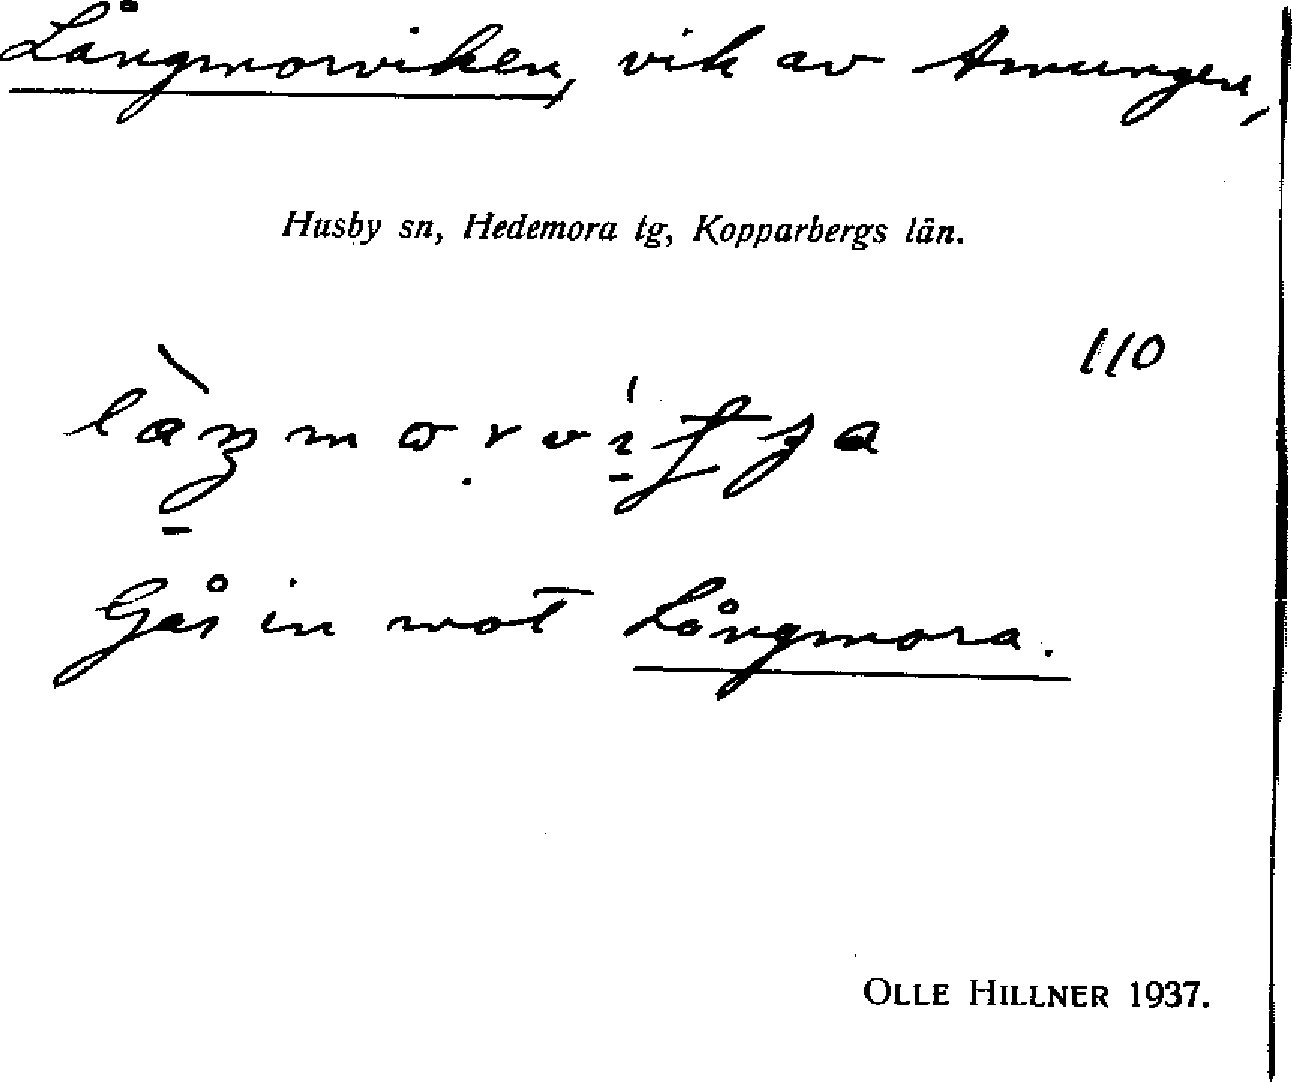 Långmorviken, vik av Amungen,
Husby sn, Hedemora tg, Kopparbergs län.
110
Går in mot Långmora.
OLLE HILLNER 1937.